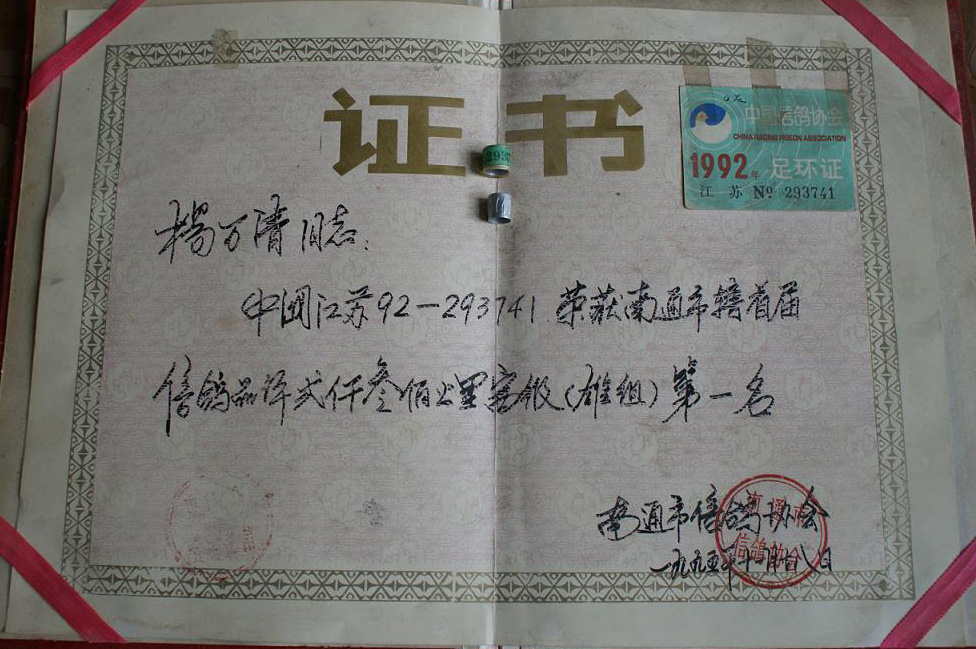 证书
293
中国信鸽协会
CHINA RACING PIGEON ASSOCIATION
1992年 足环证
江苏 Nº 293741
楊万清同志:
中國江苏92-293741 荣获南通市辖首届
信鸽品评弍仟叁佰公里赛级(雄组)第一名
南通市信鸽协会
信鸽协会
一九九五年十二月廿八日